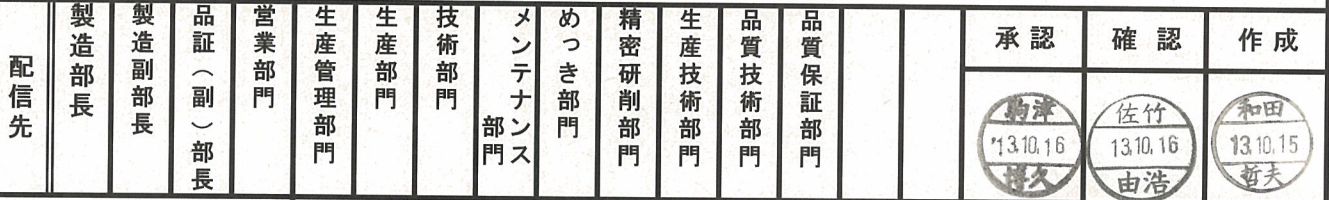 配信先
製造部長
製造副部長
品証（副）部長
営業部門
生産管理部門
生産部門
技術部門
メンテナンス
部門
めっき部門
精密研削部門
生産技術部門
品質技術部門
品質保証部門
承認
確認
作成
駒津
'13.10.16
博久
佐竹
13.10.16
由浩
和田
13.10.15
哲夫